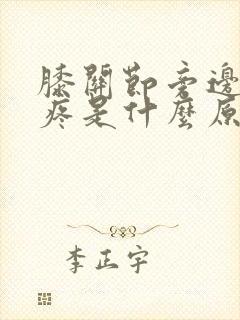 膝關節旁邊
疼是什麼原
李正宇